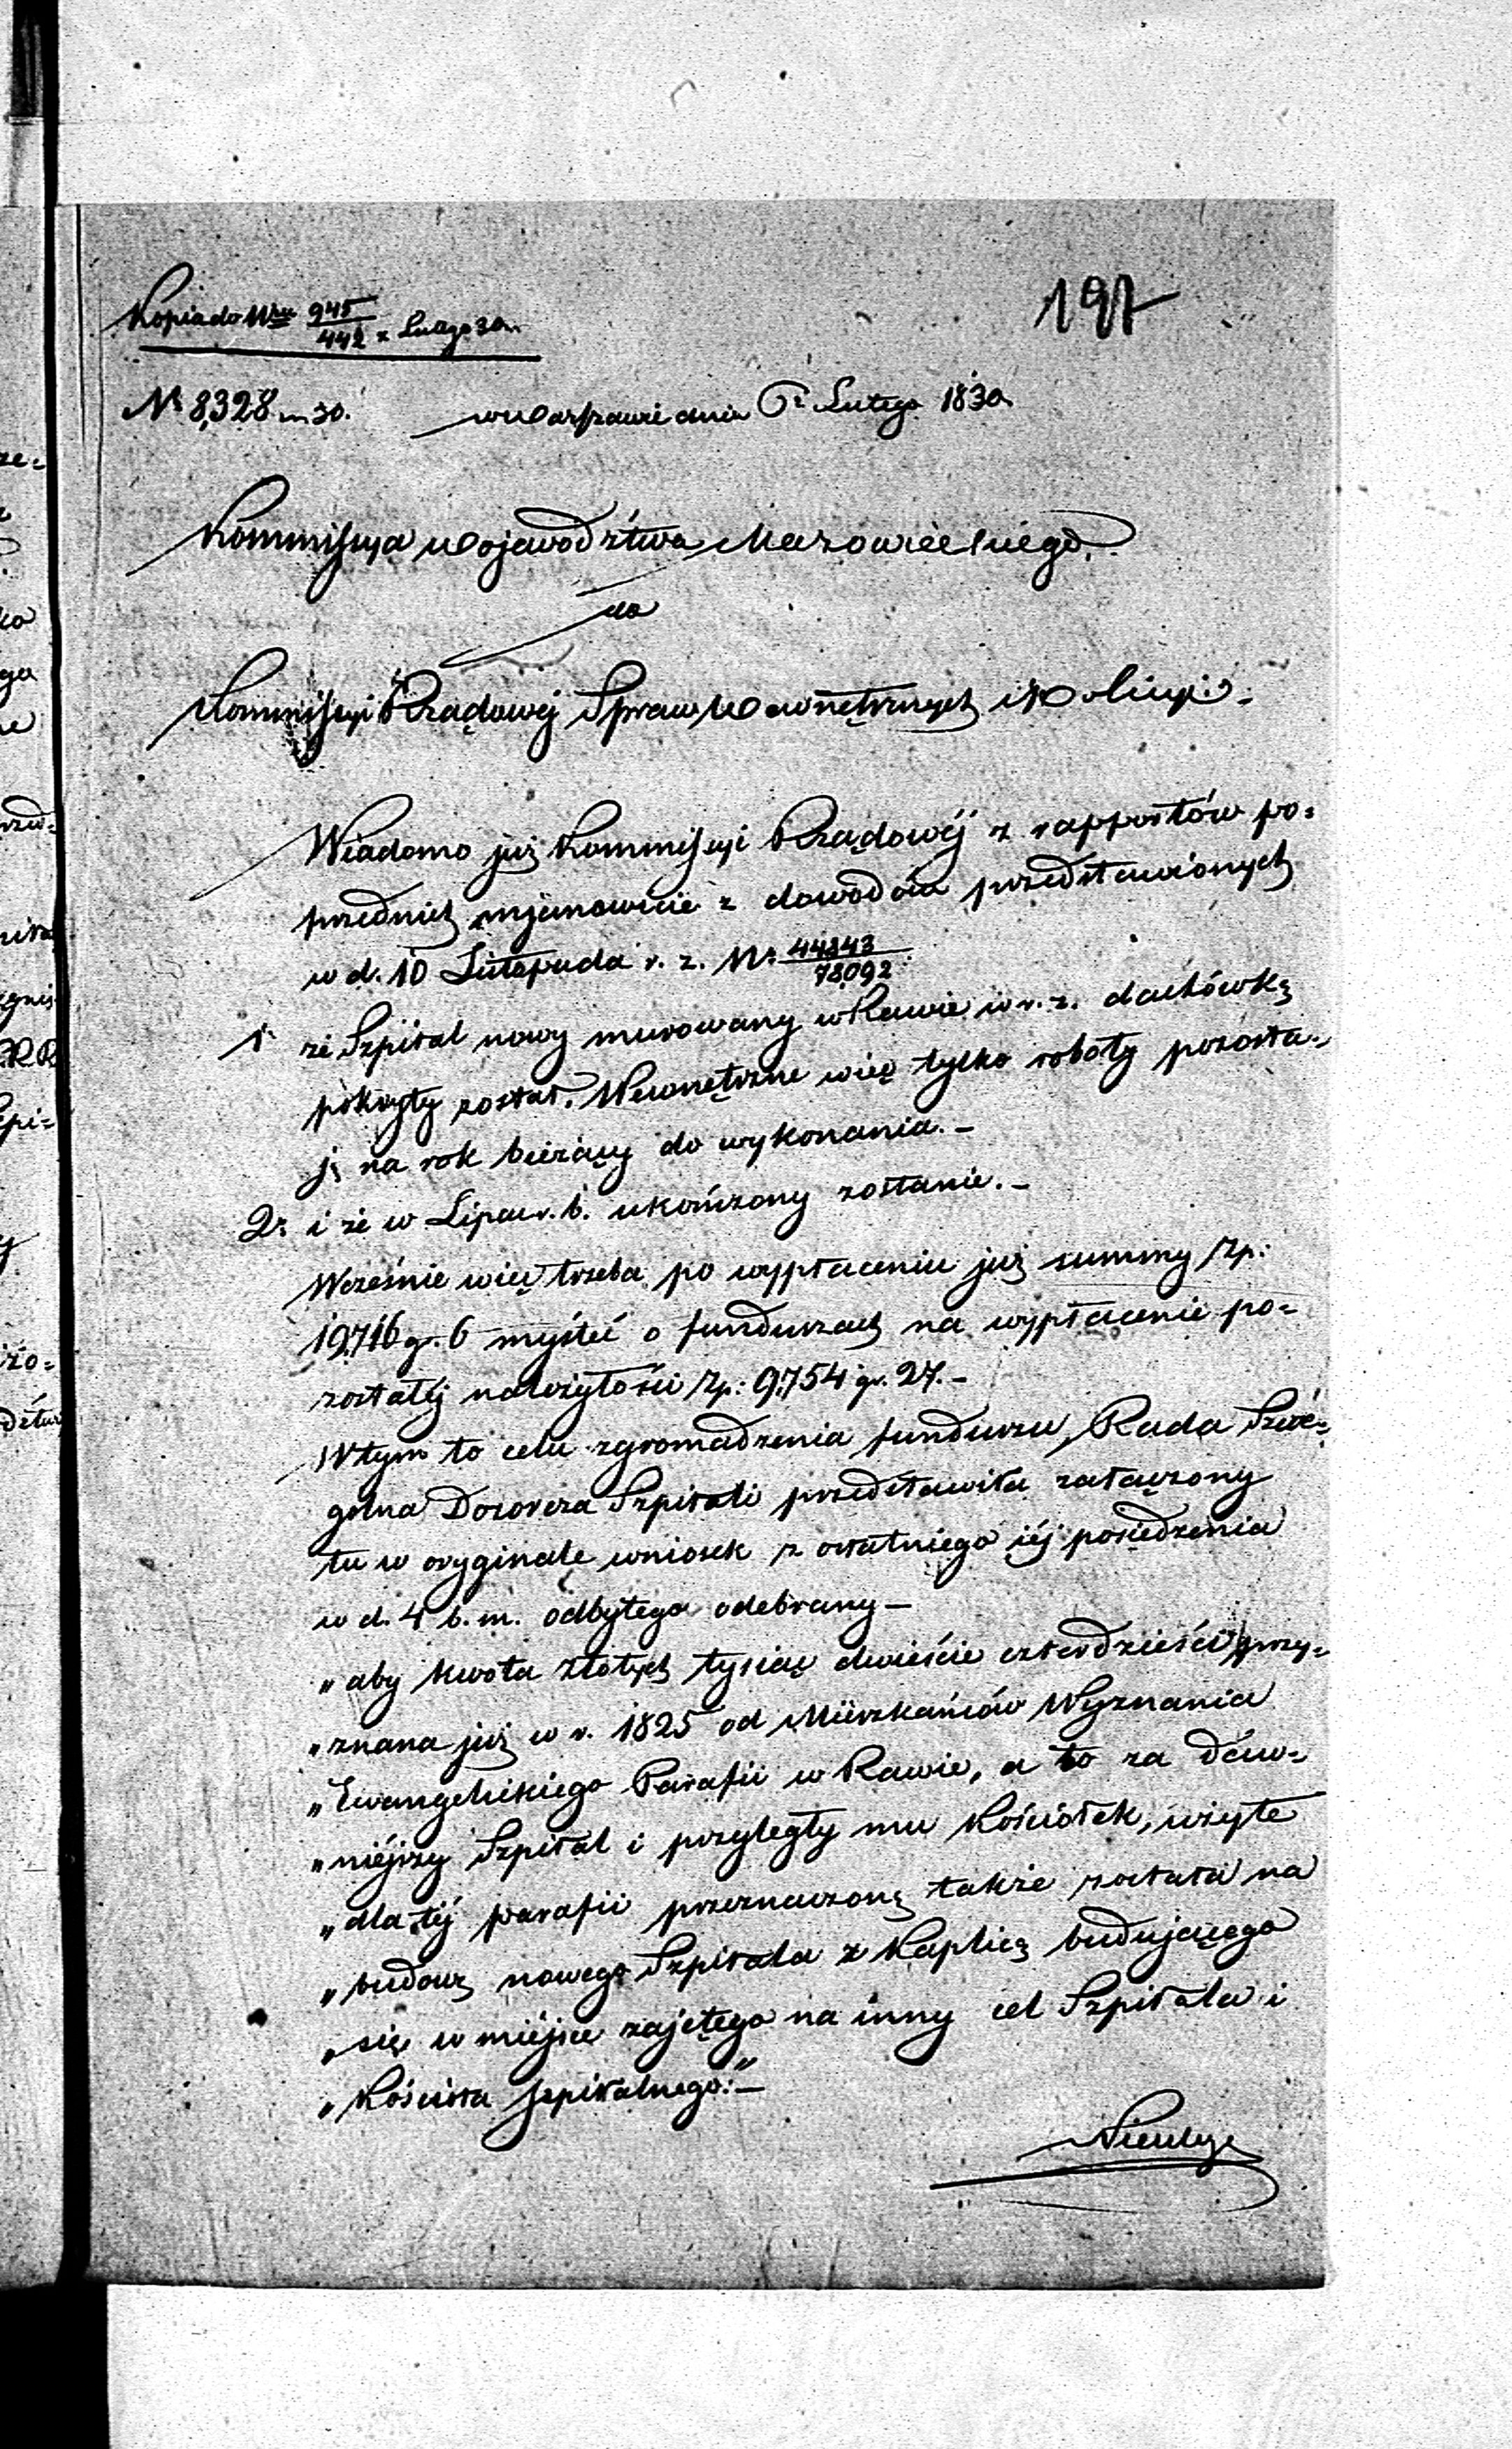 197
Kopia do Nru 945/442 z Lutego 30
Nr 8,328 30. w Warszawie dnia 6 Lutego 1830
Kommissya Województwa Mazowieckiego.
do
Kommissyi Rządowej Spraw Wewnętrznych i Policyi.
Wiadomo już Kommissyi Rządowéj z rapportów po=
przednich mianowicie z dowodów przedstawionych
w d. 10 Listopada r. z. Nr 44843/78092
1. że Szpital nowy murowany w Rawie w r. z. dachówką
pokryty został. Wewnętrzne więc tylko roboty pozosta=
ją na rok bieżący do wykonania.–
2. i że w Lipcu r. b. ukończony zostanie.–
Wcześnie więc trzeba po wypłaceniu już summy Zp:
19,716 gr. 6 myśleć o funduszach na wypłacenie po=
zostałéj należytości Zp: 9,754 gr. 27.–
W tym to celu zgromadzenia funduszu, Rada Szcze=
gólna Dozorcza Szpitali przedstawiła załączony
tu w oryginale wniosek z ostatniego jéj posiedzenia
w d. 4 b. m. odbytego odebrany –
„aby kwota złotych tysiąc dwieście czterdzieści przy=
„znana już w r. 1825 od Mieszkańców Wyznania
„Ewangelickiego Parafii w Rawie, a to za daw=
„niéjszy Szpital i przyległy mu Kościołek, użyte
„dla téj parafii przeznaczoną także została na
„budowę nowego Szpitala z Kaplicą budującego
„się w miéjsce zajętego na inny cel Szpitala i
„Kościoła szpitalnego.” –